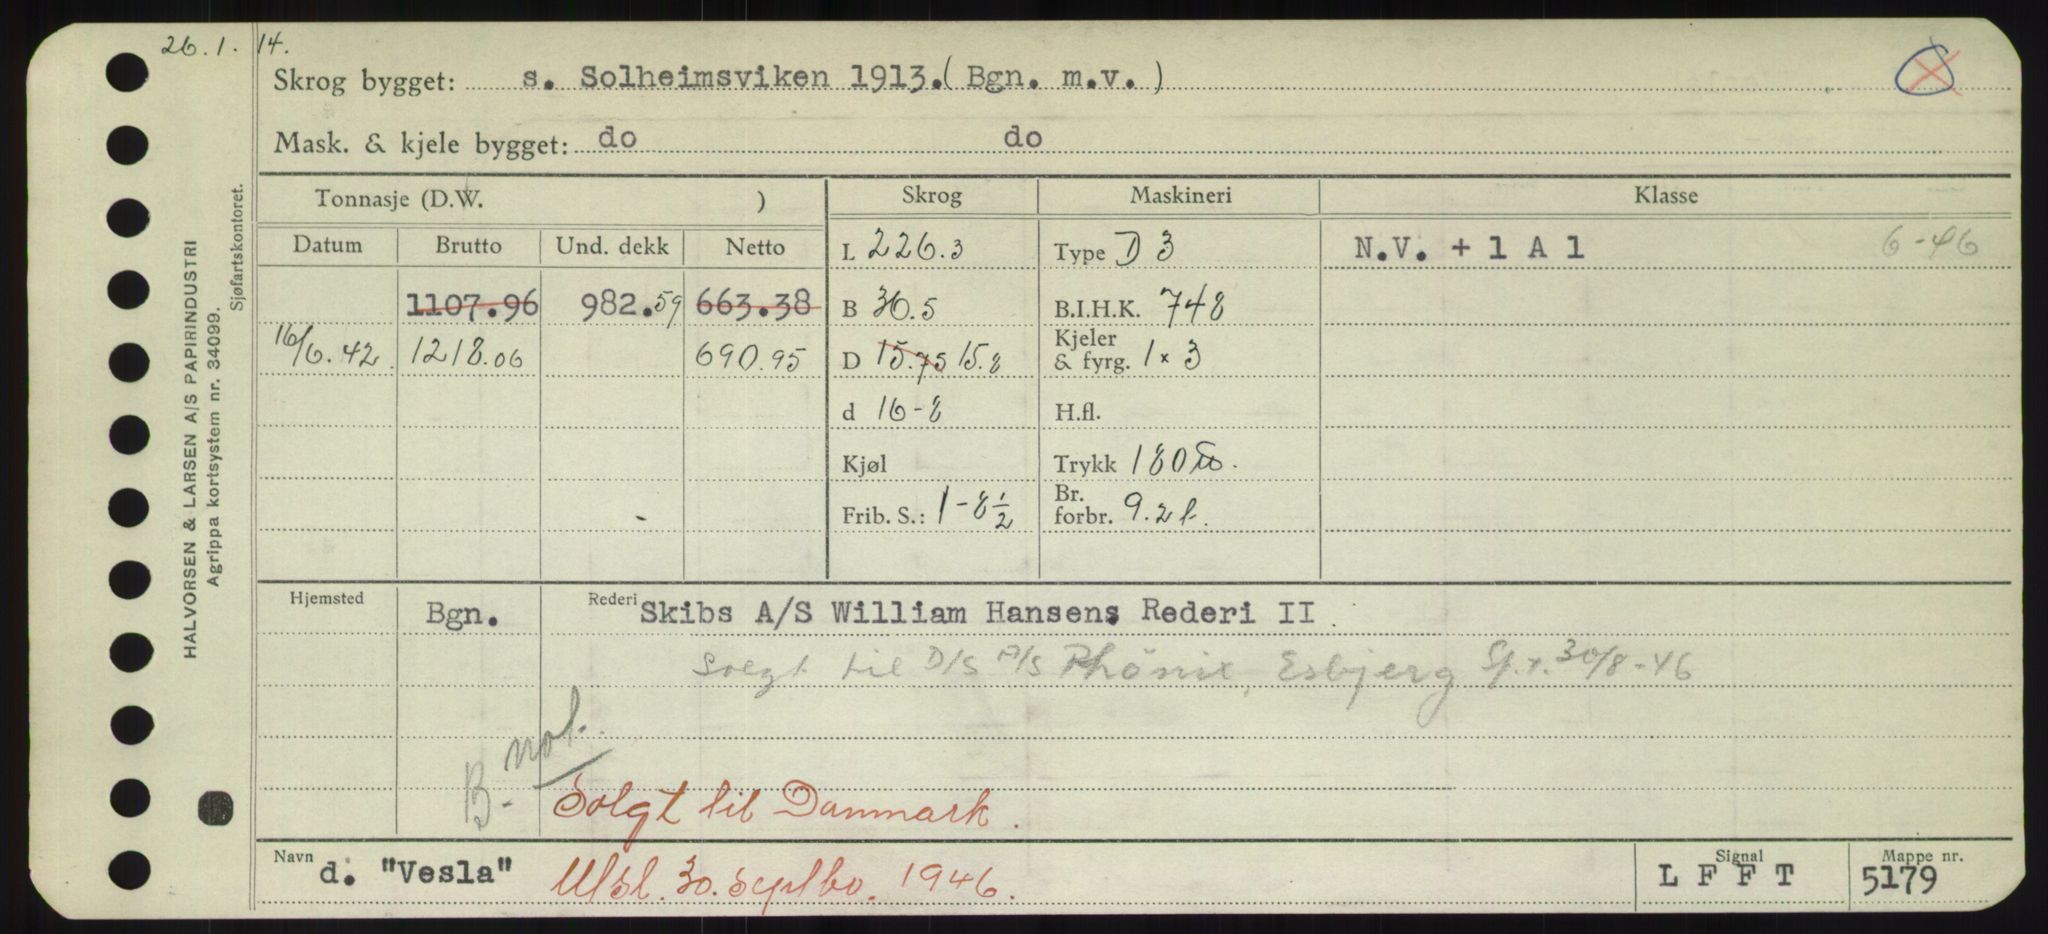 26.1.14.
Skrog bygget: s. Solheimsviken 1913.( Bgn. m.v. )
Mask. & kjele bygget: do do
Tonnasje (D.W. ) Skrog Maskineri Klasse
Datum Brutto Und. dekk Netto L 226.3 Type D 3 N.V. + 1 A 1 6-46
1107.96 982.59 663.38 B 36.5 B.I.H.K. 748
16/6.42. 1218.06 690.95 D 15.75 15.8 Kjeler & fyrg. 1 x 3
d 16-8 H.fl.
Kjøl Trykk 180
Frib. S.: 1-8½ Br. forbr. 9.2 t.
Hjemsted Bgn. Rederi Skibs A/S William Hansens Rederi II
Solgt til D/S A/S Phönix, Esbjerg 30/8-46
B. not.
Solgt til Danmark.
Navn d. "Vesla" Utsl. 30. septbr. 1946. Signal L F F T Mappe nr. 5179
HALVORSEN & LARSEN A/S PAPIRINDUSTRI
Agrippa kortsystem nr. 34099.
Sjøfartskontoret.